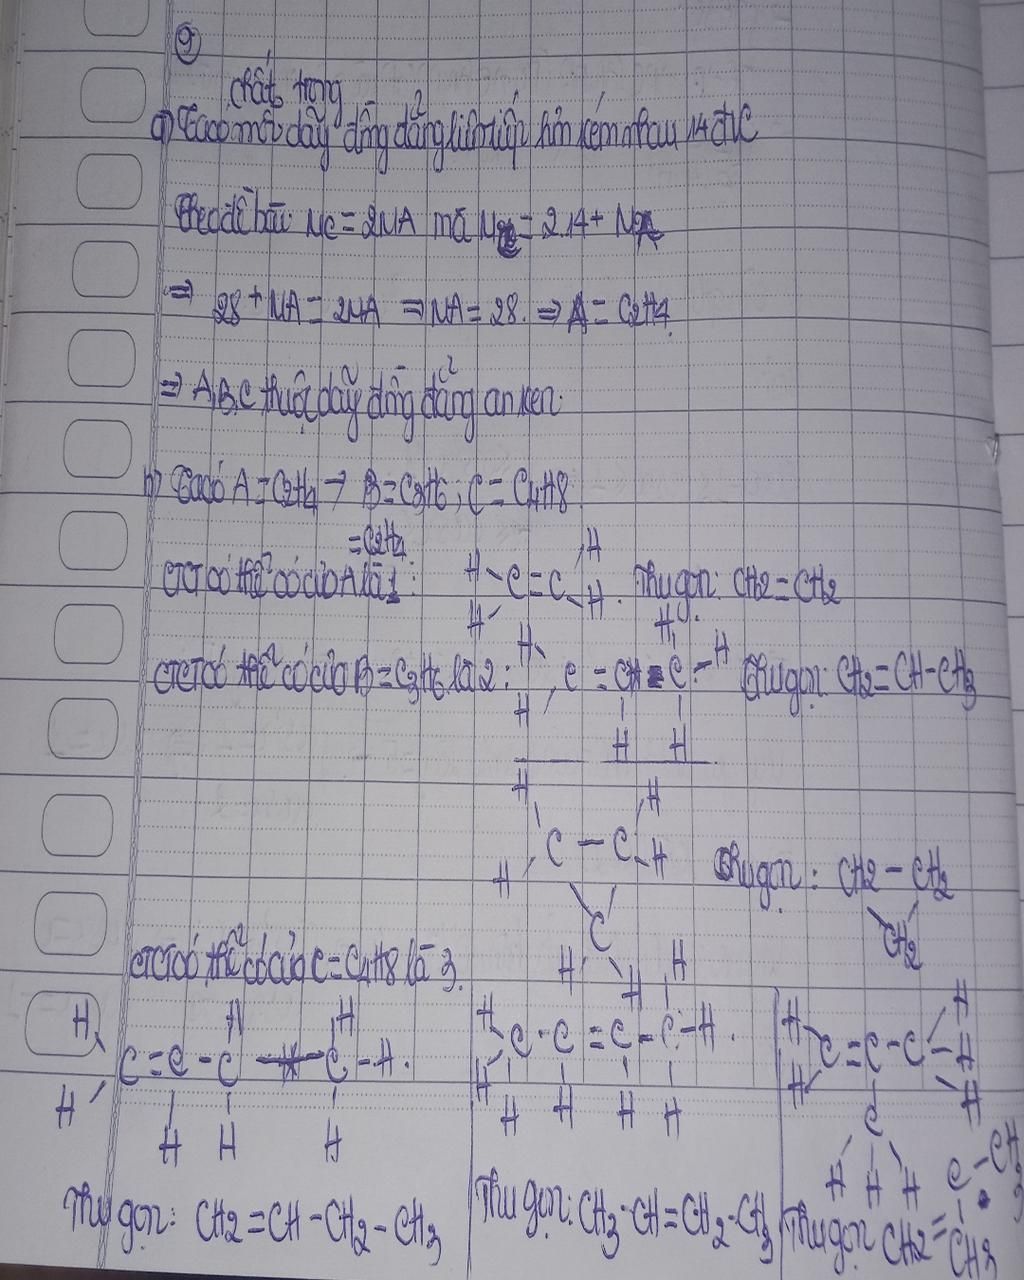 9
chất trong
a) Ta có một dãy đồng đẳng liên tiếp hơn kém nhau 14 đvC
Theo đề bài: MC = 2MA mà MC = 2.14 + MA
⇒ 28 + MA = 2MA ⇒ MA = 28. ⇒ A = C2H4
⇒ A,B,C thuộc dãy đồng đẳng anken.
b) Ta có A = C2H4 → B = C3H6; C = C4H8
= C2H4
CTCT có thể có của A là 1:
H H
C = C
H H
Thu gọn: CH2 = CH2
CTCT có thể có của B = C3H6 là 2:
H H
C = CH - C - H
H H H
Thu gọn: CH2 = CH - CH3
H H
C - C
H H
C
H H
Thu gọn: CH2 - CH2
CH2
CTCT có thể có của C = C4H8 là 3.
H H H
C = C - C - C - H.
H H H H
H H
C - C = C - C - H.
H H H H H
H H
C = C - C - H
H H
C
H H H
Thu gọn: CH2 = CH - CH2 - CH3
Thu gọn: CH3 - CH = CH2 - CH3
Thu gọn CH2 = C - CH3
CH3